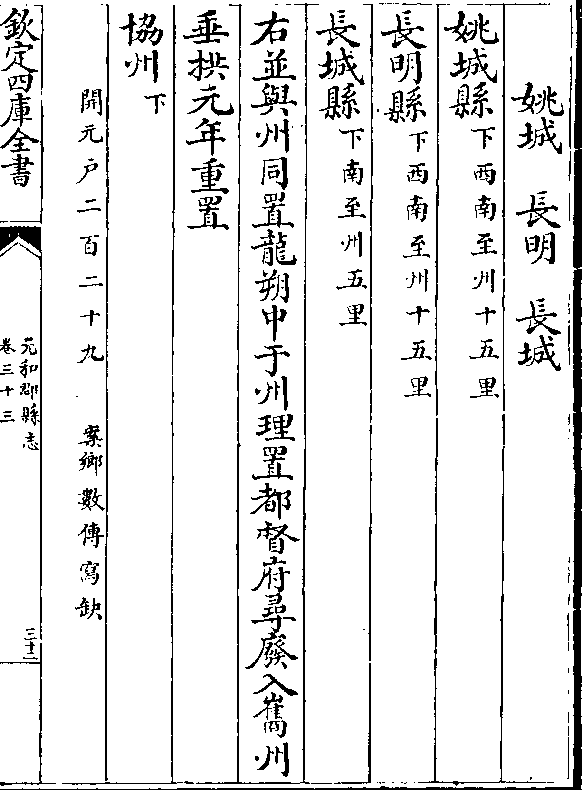 姚城 長明 長城
姚城縣下西南至州十五里
長明縣下西南至州十五里
長城縣下南至州五里
右並與州同置龍朔中于州理置都督府尋廢入嶲州
垂拱元年重置
協州下
開元户二百二十九 案鄉數傳寫缺
欽定四庫全書
元和郡縣志
卷三十三
三十二